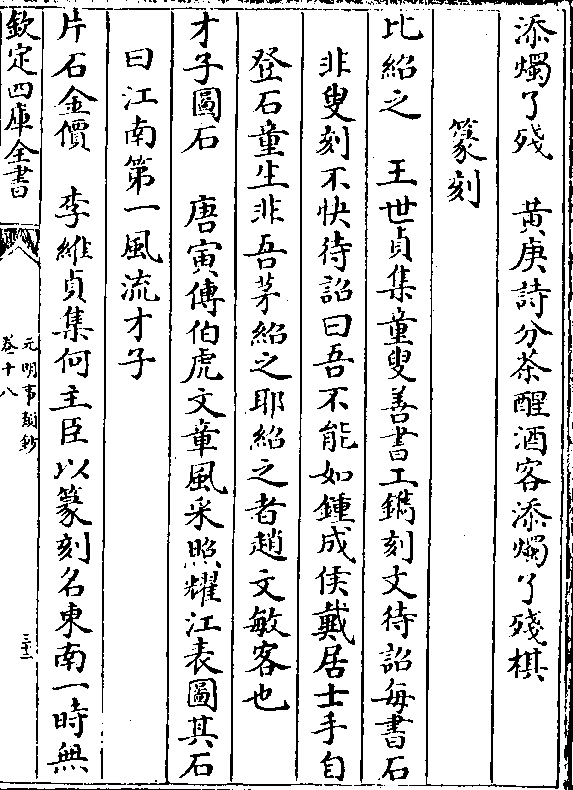 添燭了殘　黃庚詩分茶醒酒客添燭了殘棋
篆刻
比紹之　王世貞集童叟善書工鐫刻文待詔每書石
非叟刻不快待詔曰吾不能如鍾成侯戴居士手自
登石童生非吾茅紹之耶紹之者趙文敏客也
才子圖石　唐寅傳伯虎文章風采照耀江表圖其石
曰江南第一風流才子
片石金價　李維貞集何主臣以篆刻名東南一時無
欽定四庫全書
元明事類鈔
卷十八
三十二